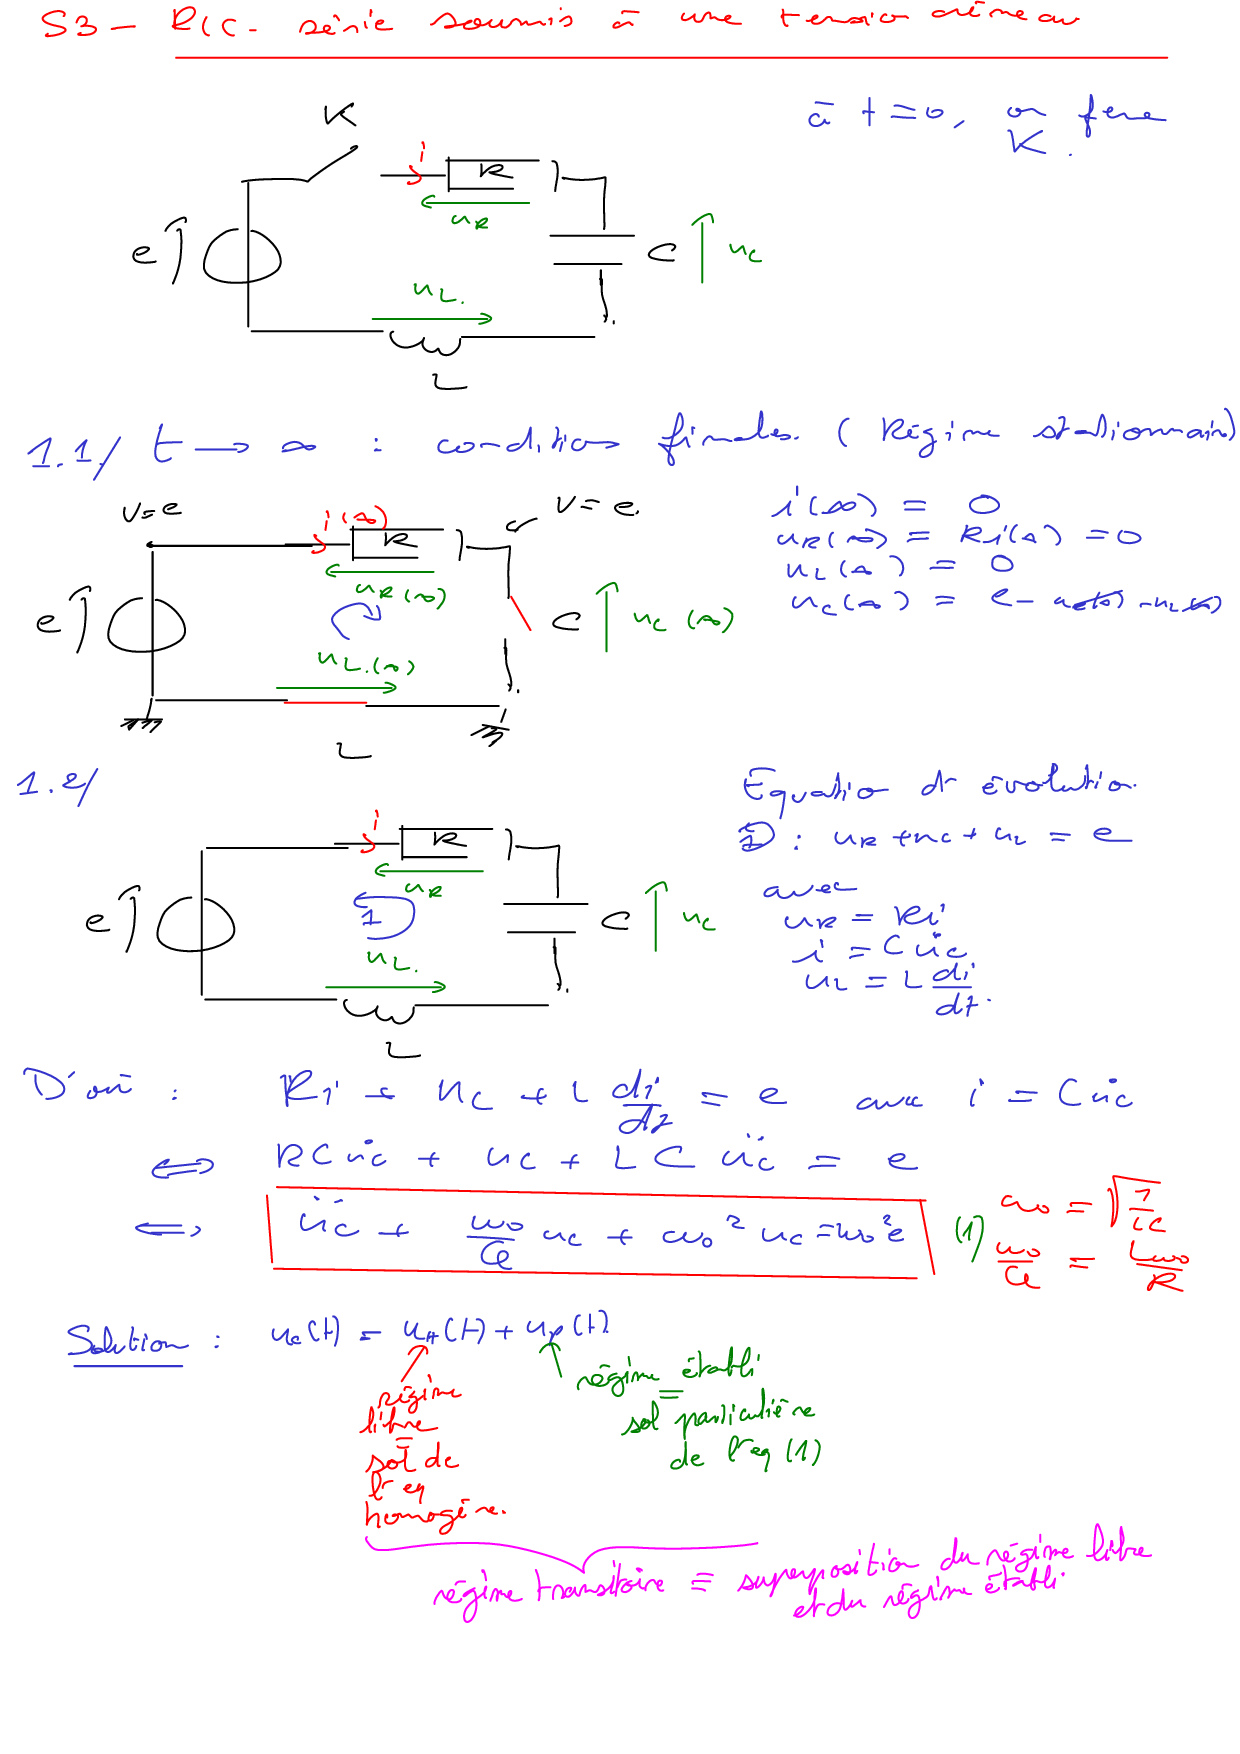 S3 - RLC série soumis à une tension créneau
à t=0, on ferme
K.
K
i
R
u_R
e
C
u_C
u_L.
L
1.1/ t → ∞ : conditions finales. ( Régime stationnaire)
V=e
i(∞)
R
V=e.
u_R(∞)
e
C
u_C(∞)
u_L.(∞)
L
i(∞) = 0
u_R(∞) = Ri(∞) = 0
u_L(∞) = 0
u_C(∞) = e - u_R(∞) - u_L(∞)
1.2/
i
R
u_R
e
1
C
u_C
u_L.
L
Equation d'évolution.
1 : u_R + u_C + u_L = e
avec
u_R = Ri
i = C u̇_C
u_L = L di/dt.
D'où : Ri + u_C + L di/dt = e avec i = C u̇_C
⟺ RC u̇_C + u_C + LC ü_C = e
⟺ ü_C + ω₀/Q u_C + ω₀² u_C = ω₀² e (1)
ω₀ = √(1/LC)
ω₀/Q = Lω₀/R
Solution : u_C(t) = u_H(t) + u_p(t).
régime
libre
=
sol de
l'eq
homogène.
régime établi
=
sol particulière
de l'eq (1)
régime transitoire ≡ superposition du régime libre
et du régime établi.